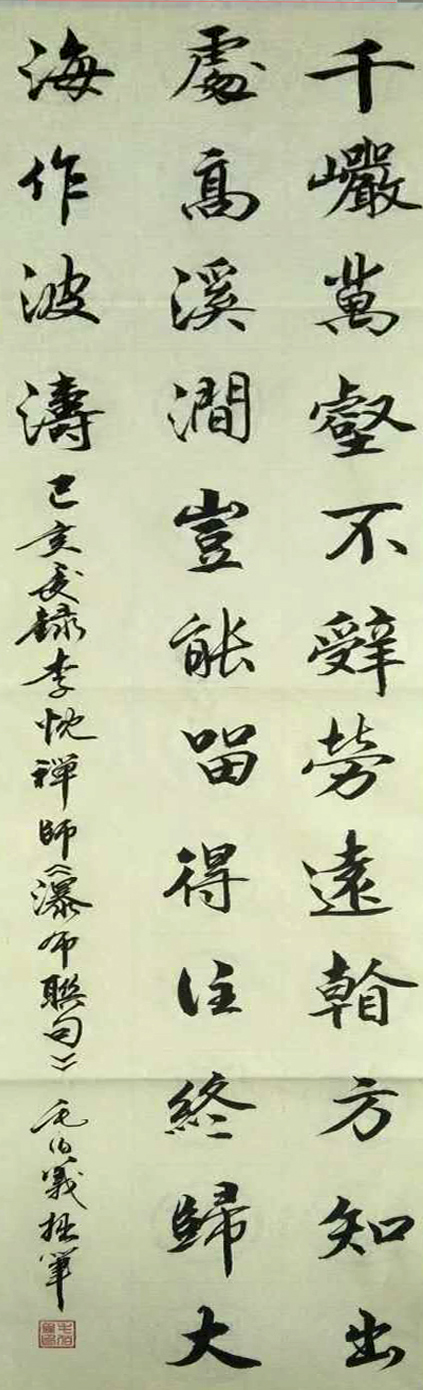 千巖萬壑不辤勞遠看方知出
處高溪澗豈能留得住終歸大
海作波濤 己亥錄李忱禪師《瀑布聯句》 毛伯義拙筆